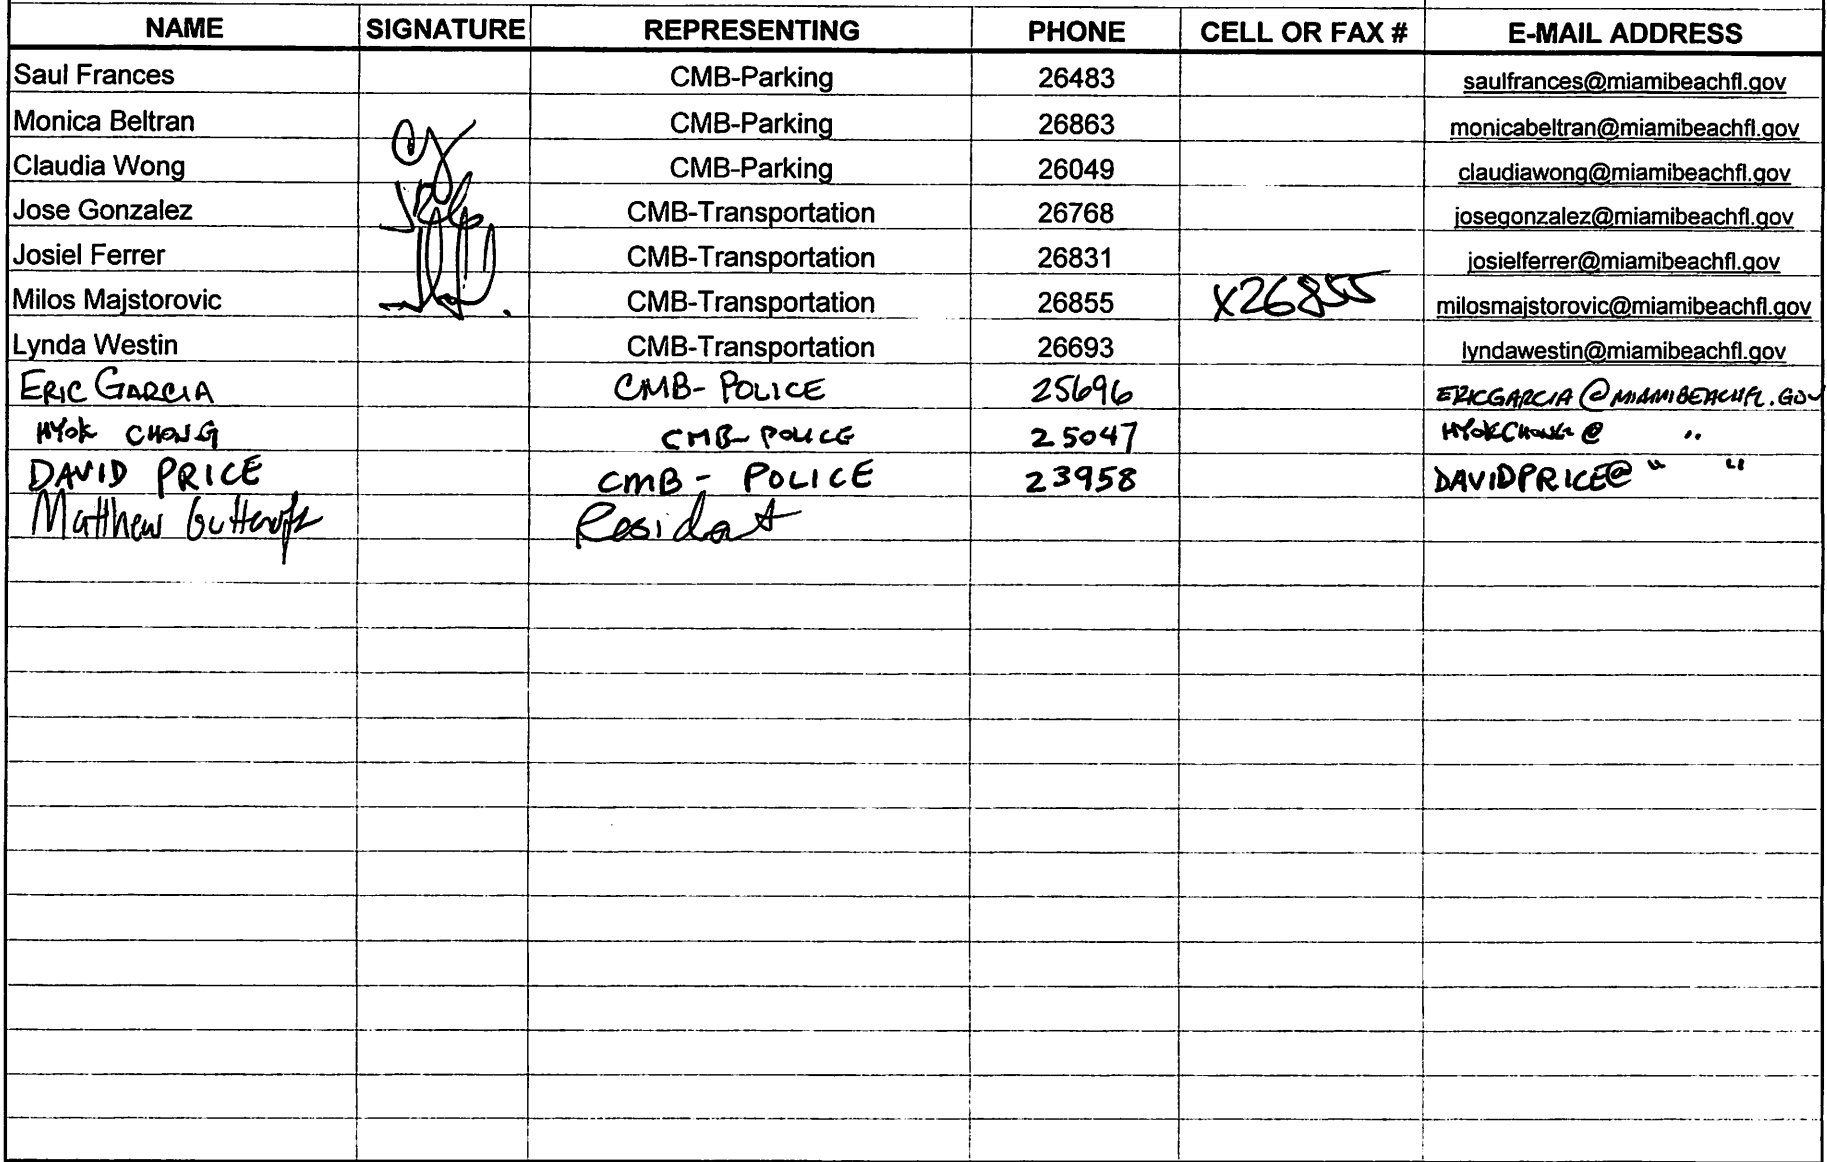 NAME SIGNATURE REPRESENTING PHONE CELL OR FAX # E-MAIL ADDRESS
Saul Frances CMB-Parking 26483 saulfrances@miamibeachfl.gov
Monica Beltran CMB-Parking 26863 monicabeltran@miamibeachfl.gov
Claudia Wong CMB-Parking 26049 claudiawong@miamibeachfl.gov
Jose Gonzalez CMB-Transportation 26768 josegonzalez@miamibeachfl.gov
Josiel Ferrer CMB-Transportation 26831 josielferrer@miamibeachfl.gov
Milos Majstorovic CMB-Transportation 26855 x26855 milosmajstorovic@miamibeachfl.gov
Lynda Westin CMB-Transportation 26693 lyndawestin@miamibeachfl.gov
ERIC GARCIA CMB- POLICE 25696 ERICGARCIA@MIAMIBEACHFL.GOV
HYOK CHONG CMB-POLICE 25047 HYOKCHONG@ "
DAVID PRICE CMB - POLICE 23958 DAVIDPRICE@ " "
Matthew Resident